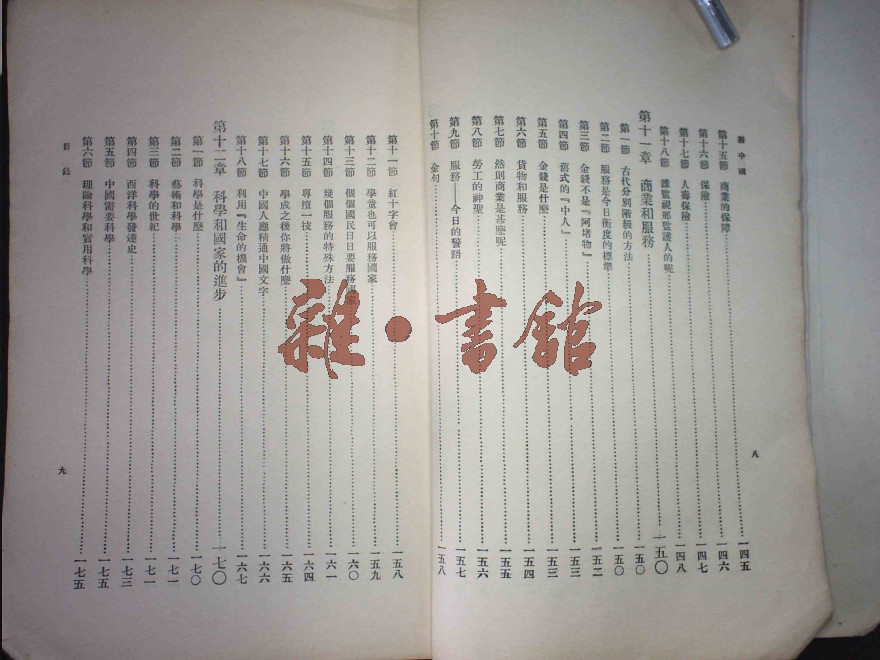 中國
八
第十五節 商業的保障 一四五
第十六節 保險 一四七
第十七節 人壽保險 一四七
第十八節 誰監視那監護人的呢 一四八
第十一章 商業和服務 一五〇
第一節 古代分別階級的方法 一五〇
第二節 服務是今日衡度的標準 一五二
第三節 金錢不是『阿堵物』 一五三
第四節 舊式的『中人』 一五三
第五節 金錢是什麼 一五三
第六節 貨物和服務 一五四
第七節 然則商業是甚麼呢 一五五
第八節 勞工的神聖 一五六
第九節 服務——今日的警語 一五七
第十節 金句 一五八
第十一節 紅十字會 一五八
第十二節 學童也可以服務國家 一五九
第十三節 個個國民日日要服務國家 一六〇
第十四節 幾個服務的特殊方法 一六一
第十五節 專擅一技 一六四
第十六節 學成之後你將做什麼 一六五
第十七節 中國人應精通中國文字 一六六
第十八節 利用『生命的機會』 一六七
第十二章 科學和國家的進步 一七〇
第一節 科學是什麼 一七〇
第二節 藝術和科學 一七一
第三節 科學的世紀 一七一
第四節 西洋科學發達史 一七三
第五節 中國需要科學 一七五
第六節 理論科學和實用科學 一七五
目錄
九
雜·書館